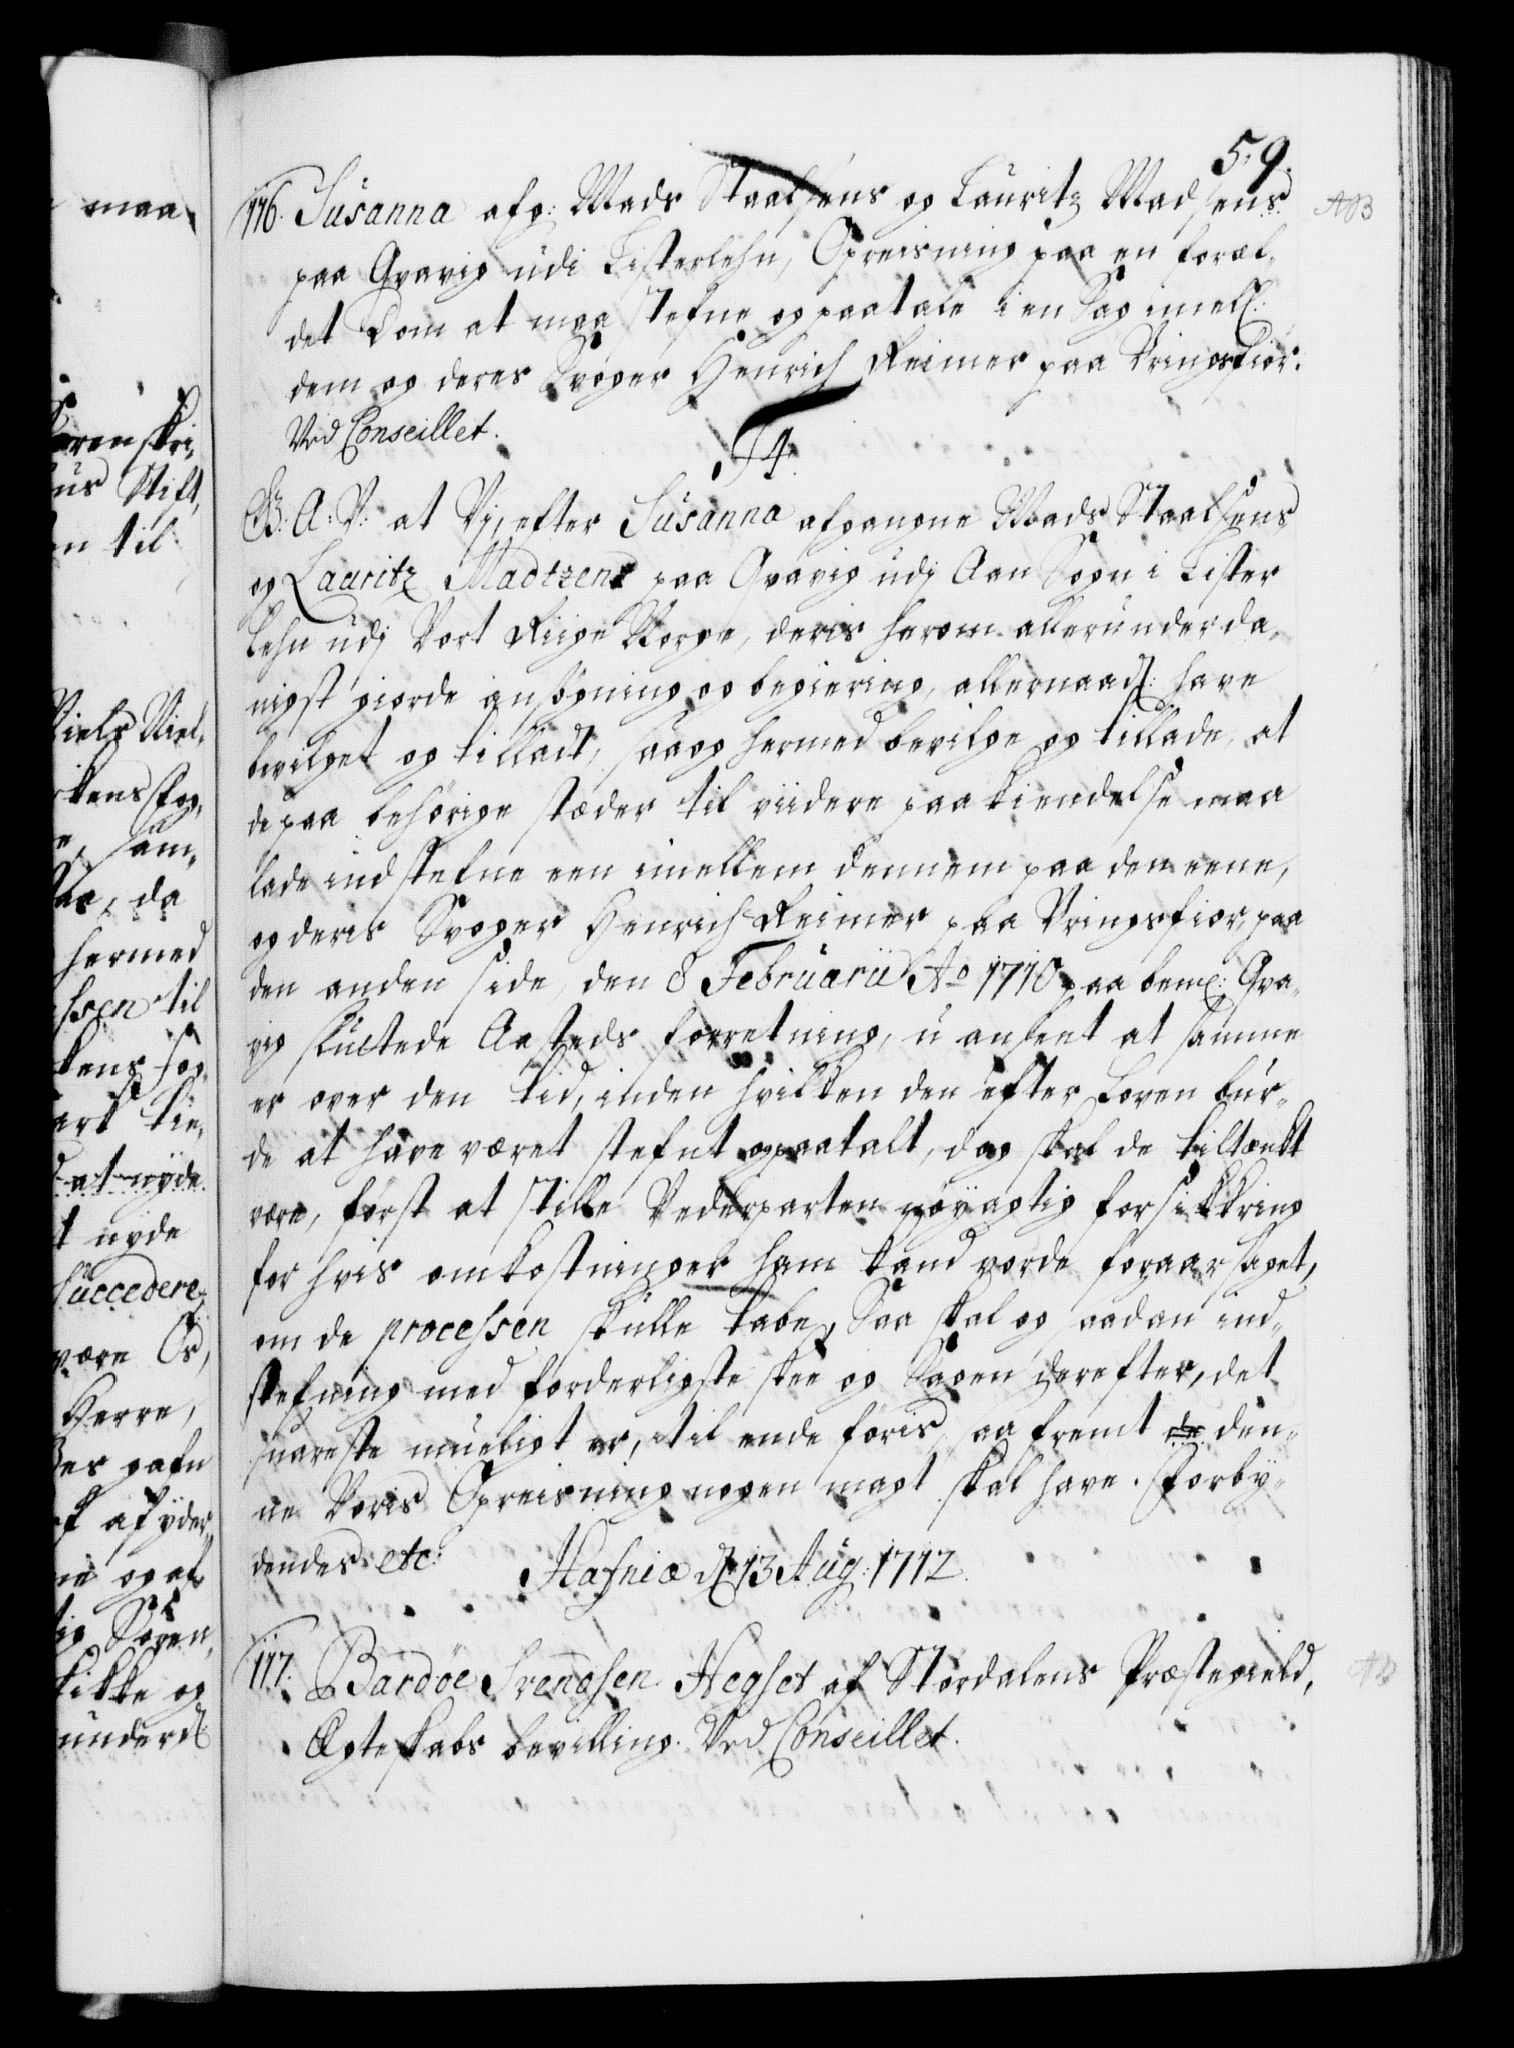 59.
116. Susanna afg: Mads Staalsens og Lauritz Madsens
paa Gvavig udi Listerlehn, Opreisning paa en foræl-
det Dom at maa stefne og paatale i en Sag imell:
dem og deres Svoger Henrich Reimer paa Vringsfior.
Ved Conseillet.
F4.
G: A: V: at Vj efter Susanna afgangne Mads Staalsens
og Lauritz Madtzens paa Gvavig udj Aan Sogn i Lister
Lehn udj Vort Riige Norge, deris herom allerunderda-
nigst giorde ansøgning og begiering, allernaad: have
bevilget og tilladt, saa og hermed bevilge og tillade, at
de paa behørige stæder til viidere paakiendelse maa
lade indstefne een imellem dennem paa den eene,
og deris Svoger Henrich Reimer paa Vringsfior, paa
den anden side, den 8 Februarii Ao 1710 paa bem: Gva-
vig sluttede Aasteds forretning, u anseet at samme
er over den tid, inden hvilken den efter Loven bur-
de at have været stefnt og paatalt, dog skal de tiltænkt
være, først at stille Vederparten nøyagtig forsikkring
for hvis omkostninger ham kand vorde foraarsaget,
om de processen skulle tabe, Saa skal og saadan ind-
stefning med forderligste skee og Sagen derefter, det
snareste mueligt er, til ende føris, saa fremt de den-
ne Voris Opreisning nogen magt skal have. Forby-
dendes etc: Hafniæ d. 13 Aug: 1712.
117. Bardöe Svendsen Hegset af Stördalens Præstegield,
Ægteskabs bevilling. Ved Conseillet.